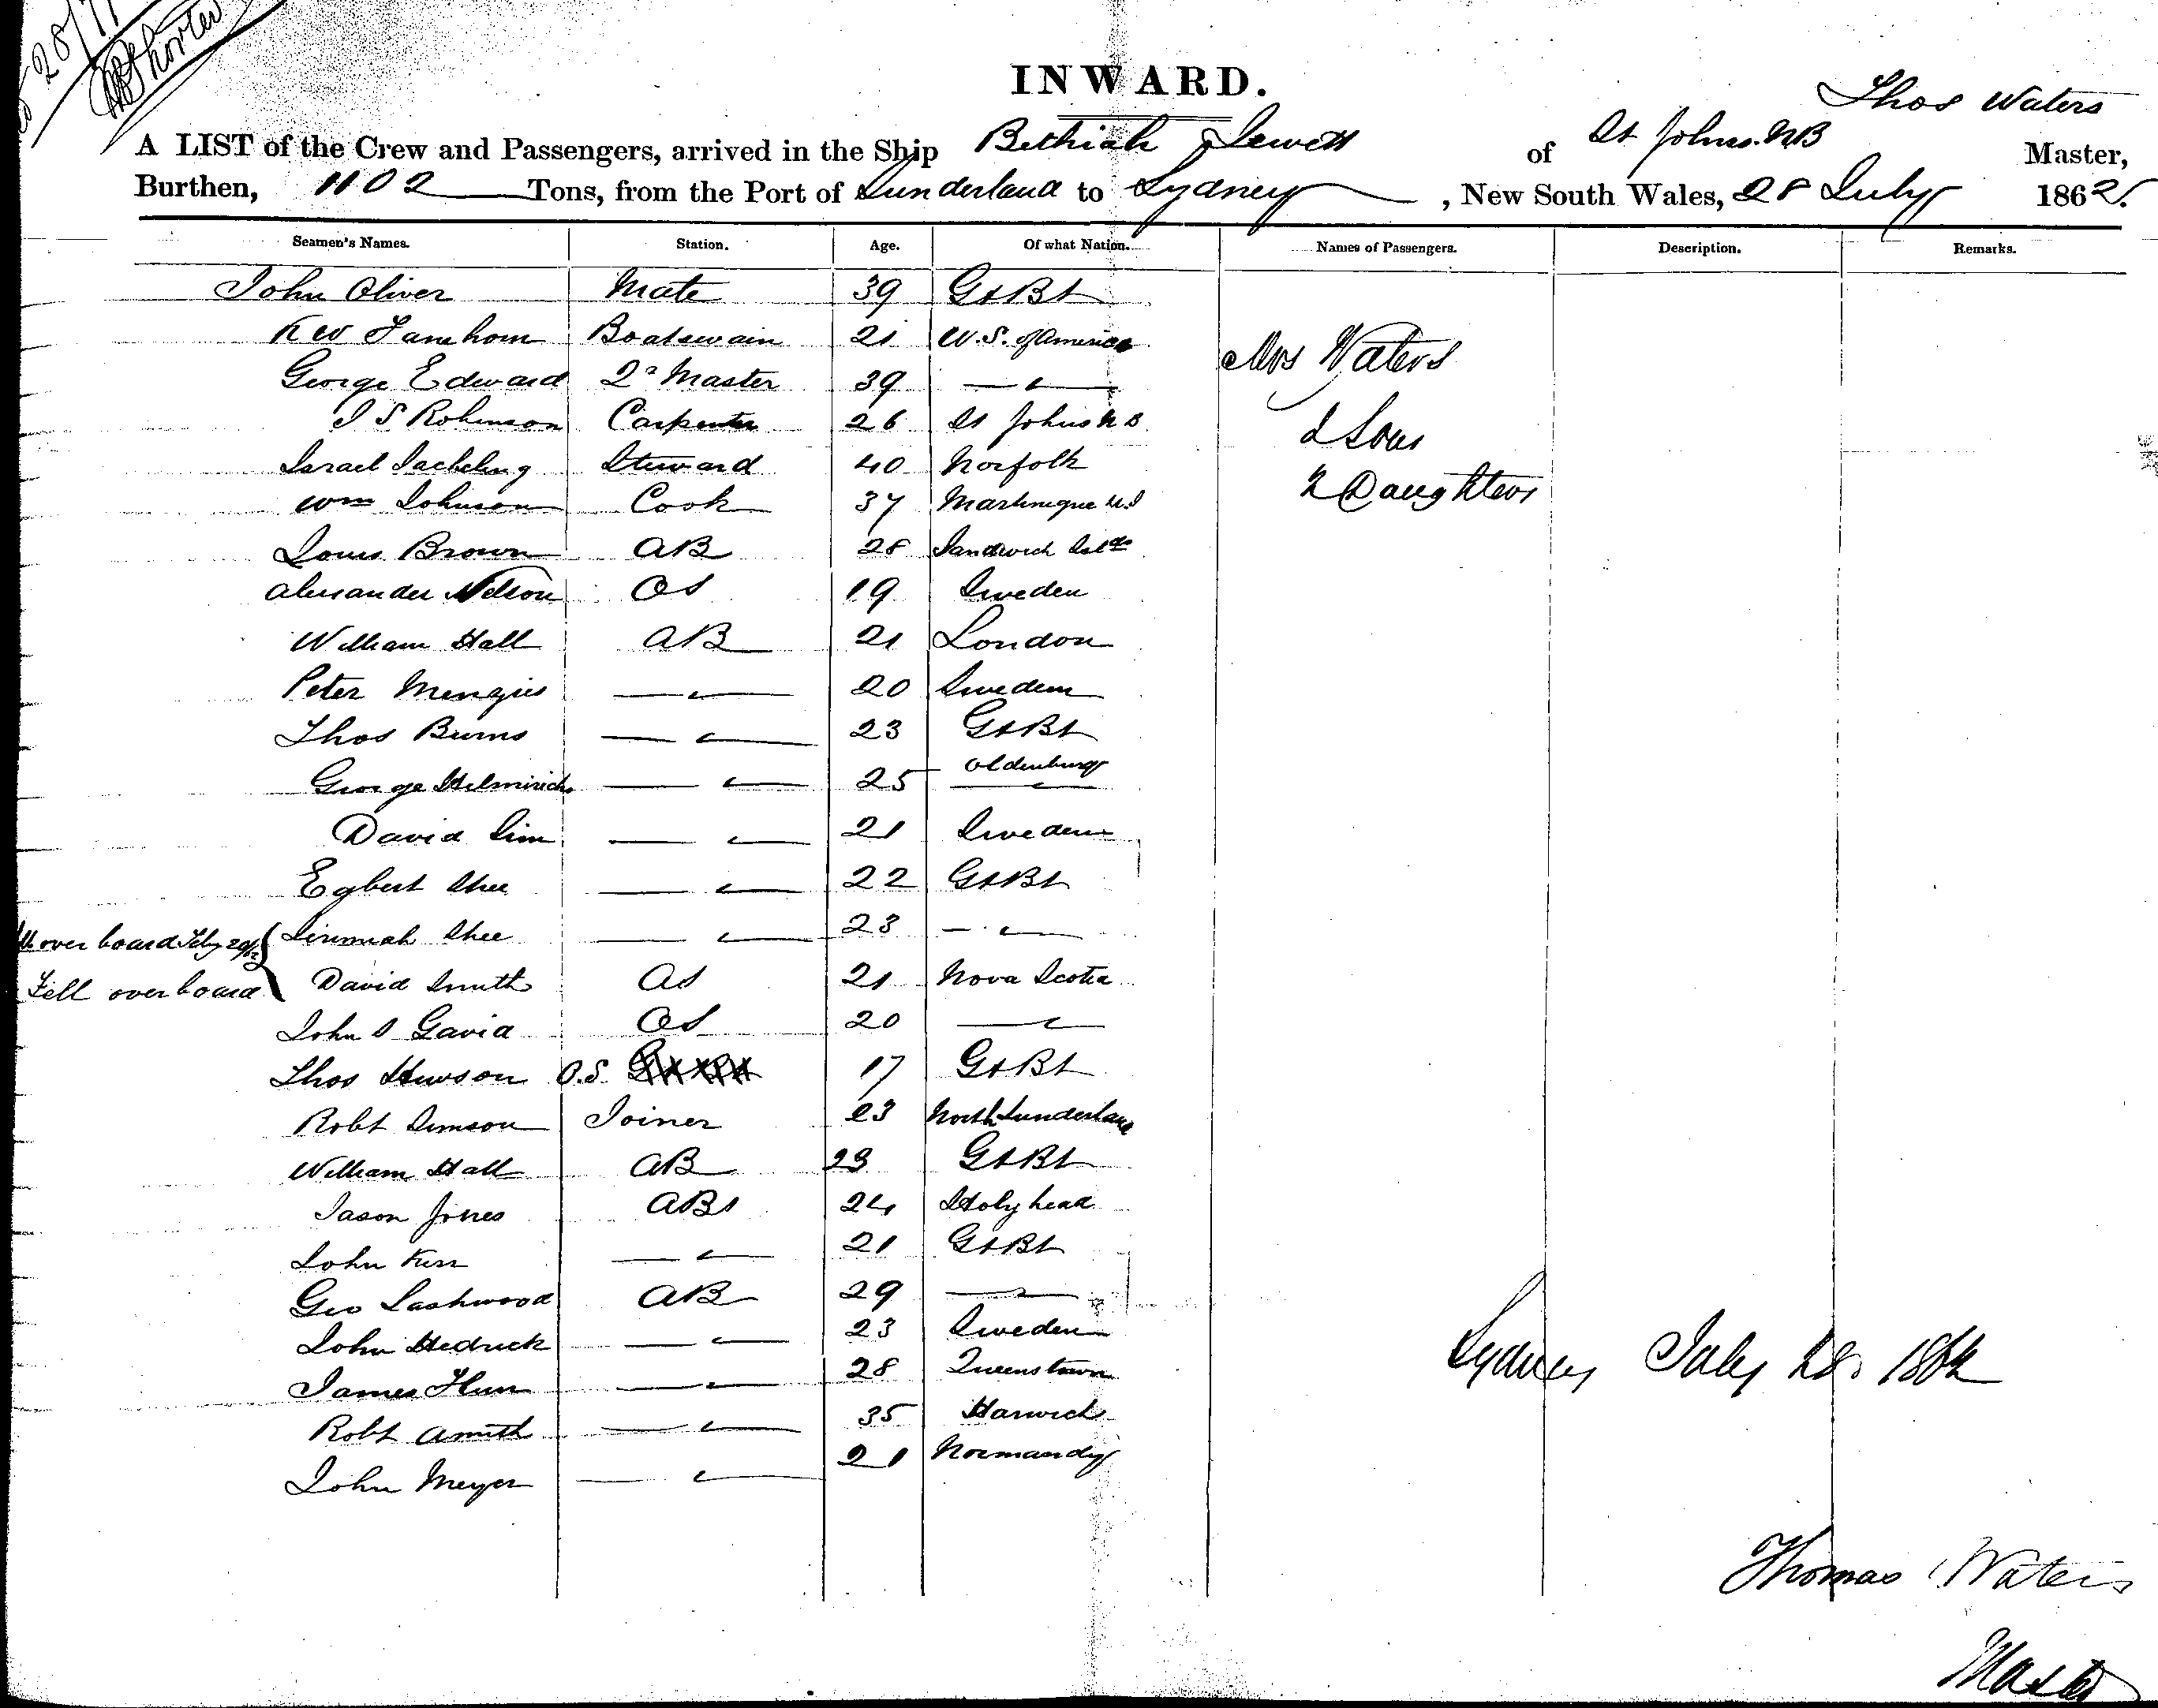 28/7
Shorter
INWARD.
Thos Waters
A LIST of the Crew and Passengers, arrived in the Ship Bethiah Jewett of St Johns. NB Master,
Burthen, 1102 Tons, from the Port of Sunderland to Sydney, New South Wales, 28 July 1862.
Seamen's Names. Station. Age. Of what Nation. Names of Passengers. Description. Remarks.
John Oliver Mate 39 Gt Bt
K W Farnhom Boatswain 21 U.S. of America
Mrs Waters
George Edward 2d Master 39 — "
J S Robinson Carpenter 26 St Johns N B
2 Sons
Israel Steward 40 Norfolk
2 Daughters
Wm Johnson Cook 37 Martinique
Louis Brown AB 28 Sandwich Islds
Alexander Nelson OS 19 Sweden
William Hall AB 21 London
Peter — " 20 Sweden
Thos Burns — " 23 Gt Bt
George Helmirichs — " 25 Oldenburg
David Sim — " 21 Sweden
Egbert Shee — " 22 Gt Bt
over board Feby Jeremiah Shee — " 23 — "
Fell over board David Smith AS 21 Nova Scotia
John S Gavia OS 20 — "
Thos Hewson O.S. 17 Gt Bt
Robt Simson Joiner 23 North Sunderland
William Hall AB 23 Gt Bt
Jason Jones ABs 24 Holyhead
John Kerr — " 21 Gt Bt
Geo Lashwood AB 29 — "
John Hedrick — " 23 Sweden
James — " 28 Queenstown
Sydney July 28. 1862
Robt Smith — " 35 Harwich
John Meyer — " 21 Normandy
Thomas Waters
Master